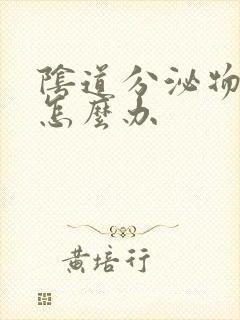 陰道分泌物
怎麼办
黄培行